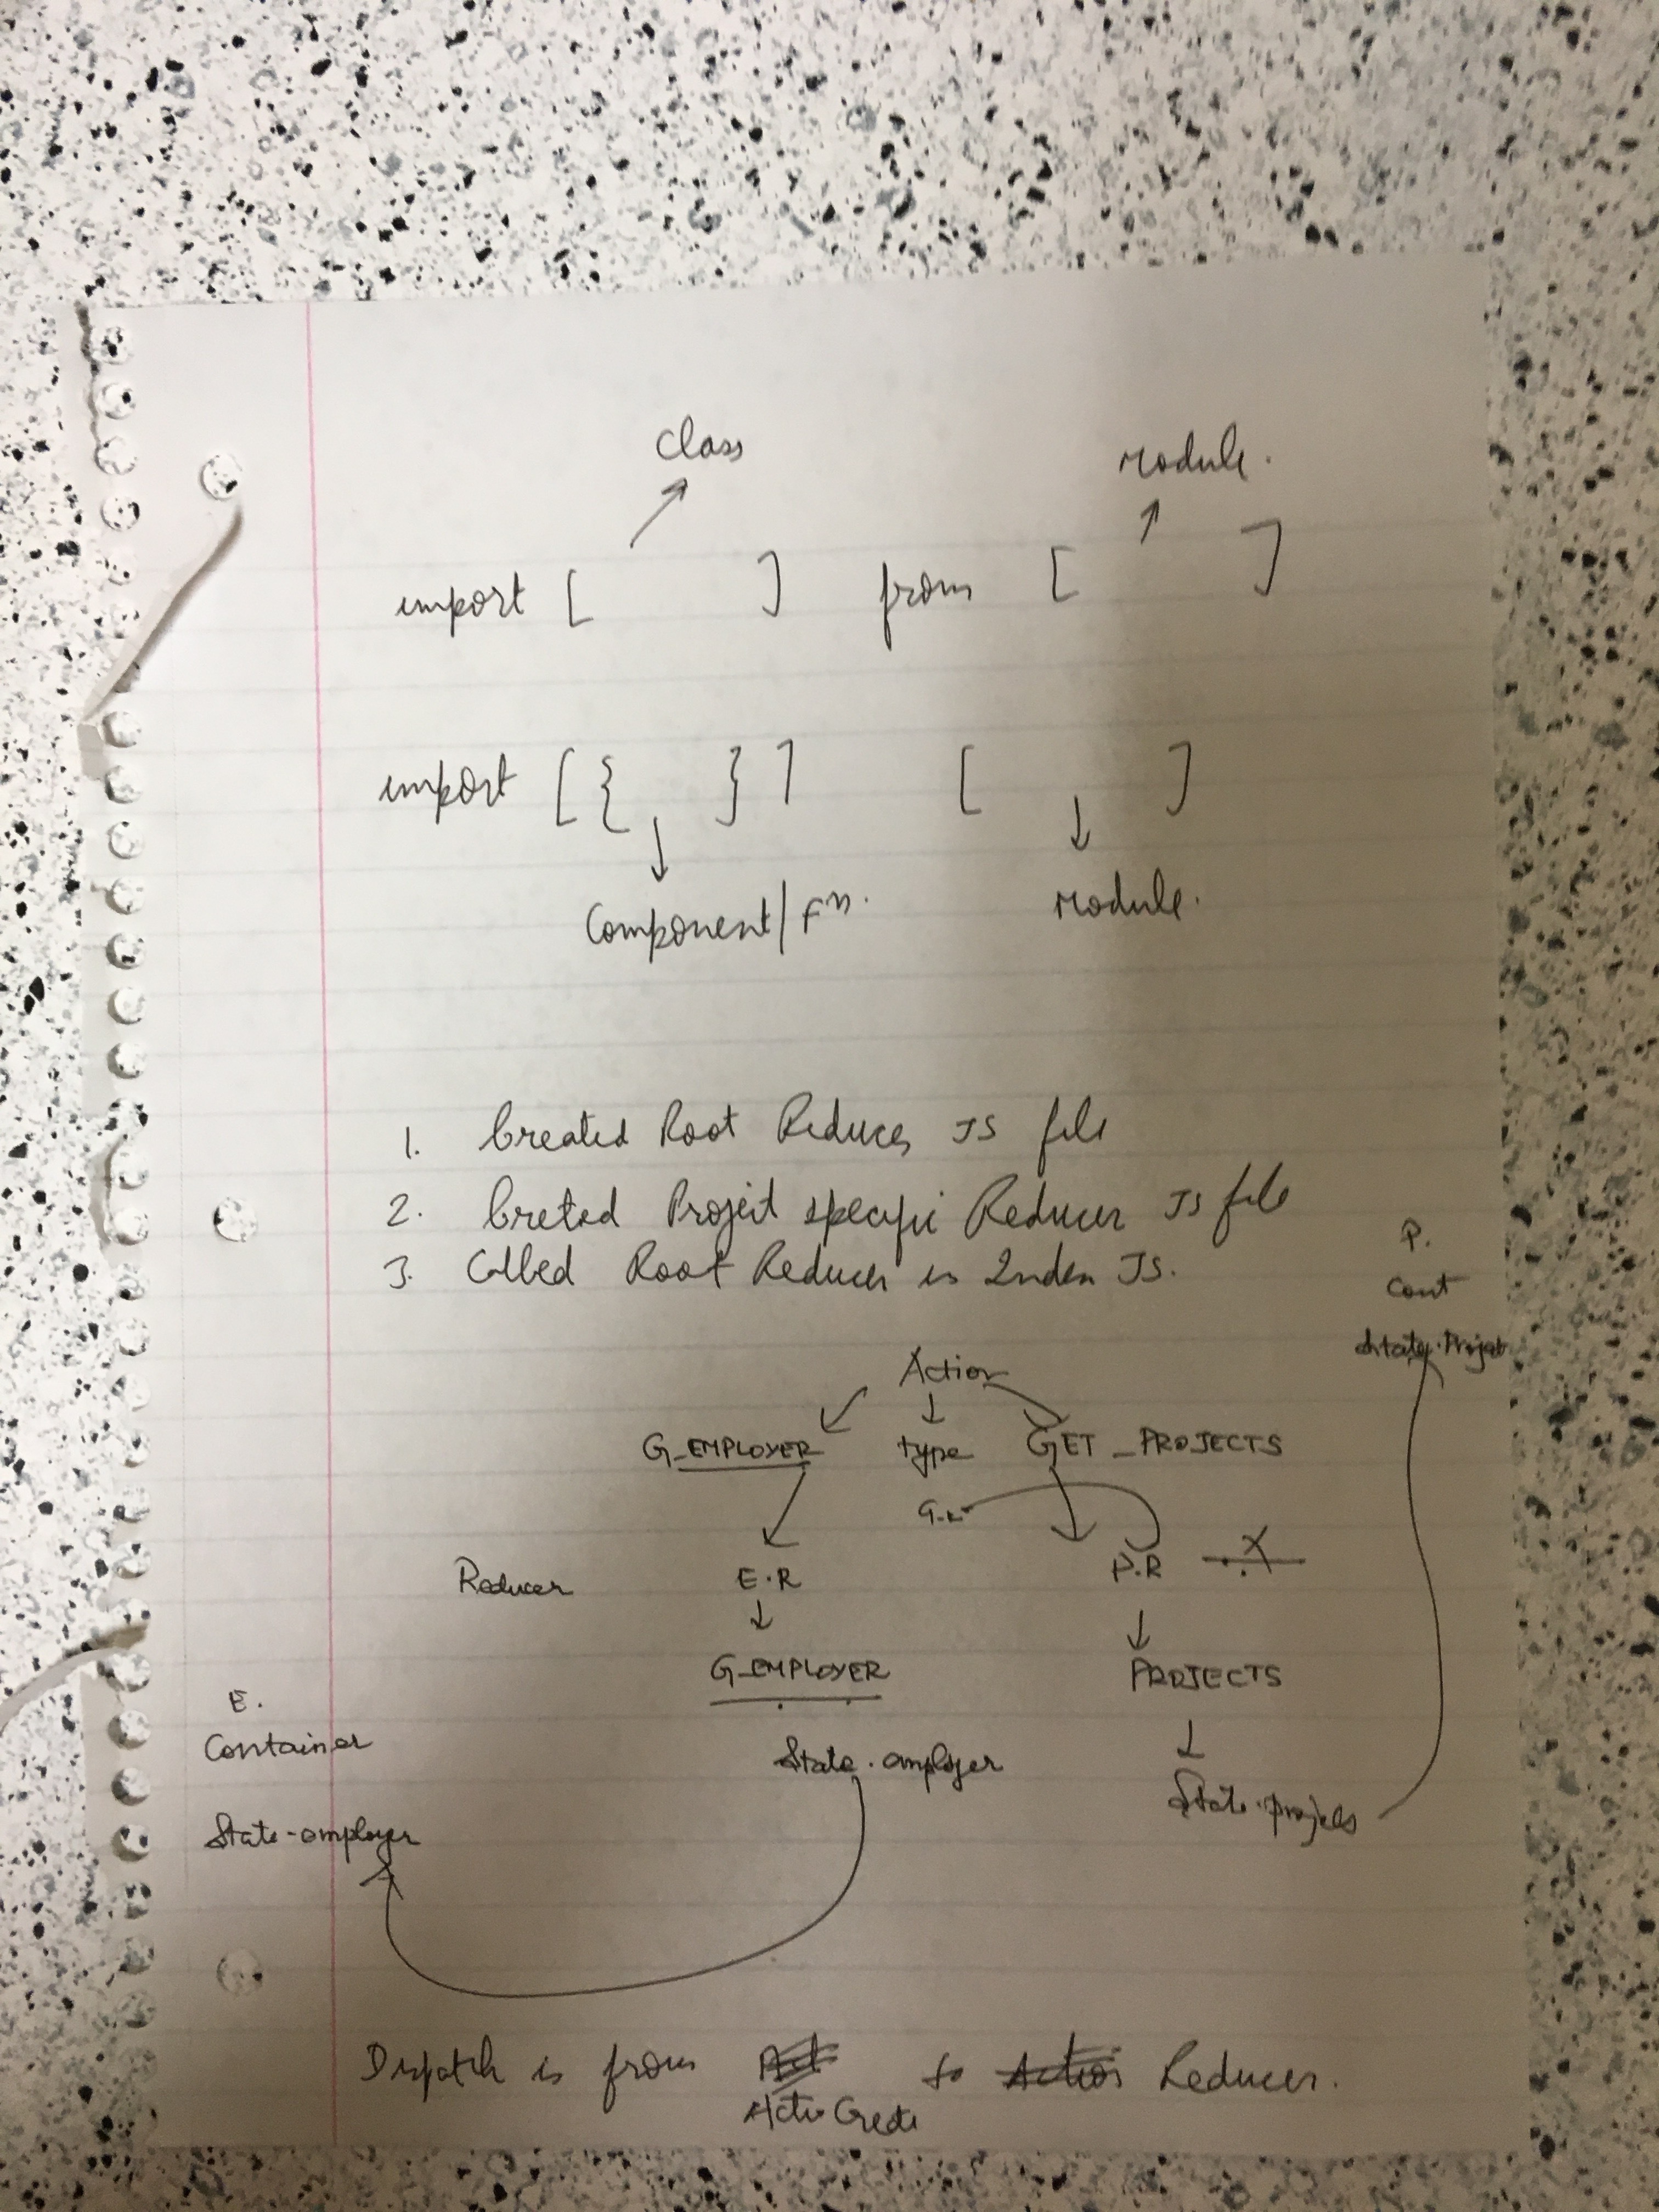 Class Module.
import [ ] from [ ]
import [ { } ] [ ]
Component/Fn. Module.
1. Created Root Reducer JS file
2. Creted Project specific Reducer JS file
3. Called Root Reducer in Index JS.
P.
Cont
State.Projet
Action
G_EMPLOYER type GET_PROJECTS
Reducer E.R P.R
G_EMPLOYER PROJECTS
E.
Container
State.employer
State.projets
State-employer
Dispatch is from to Reducer.